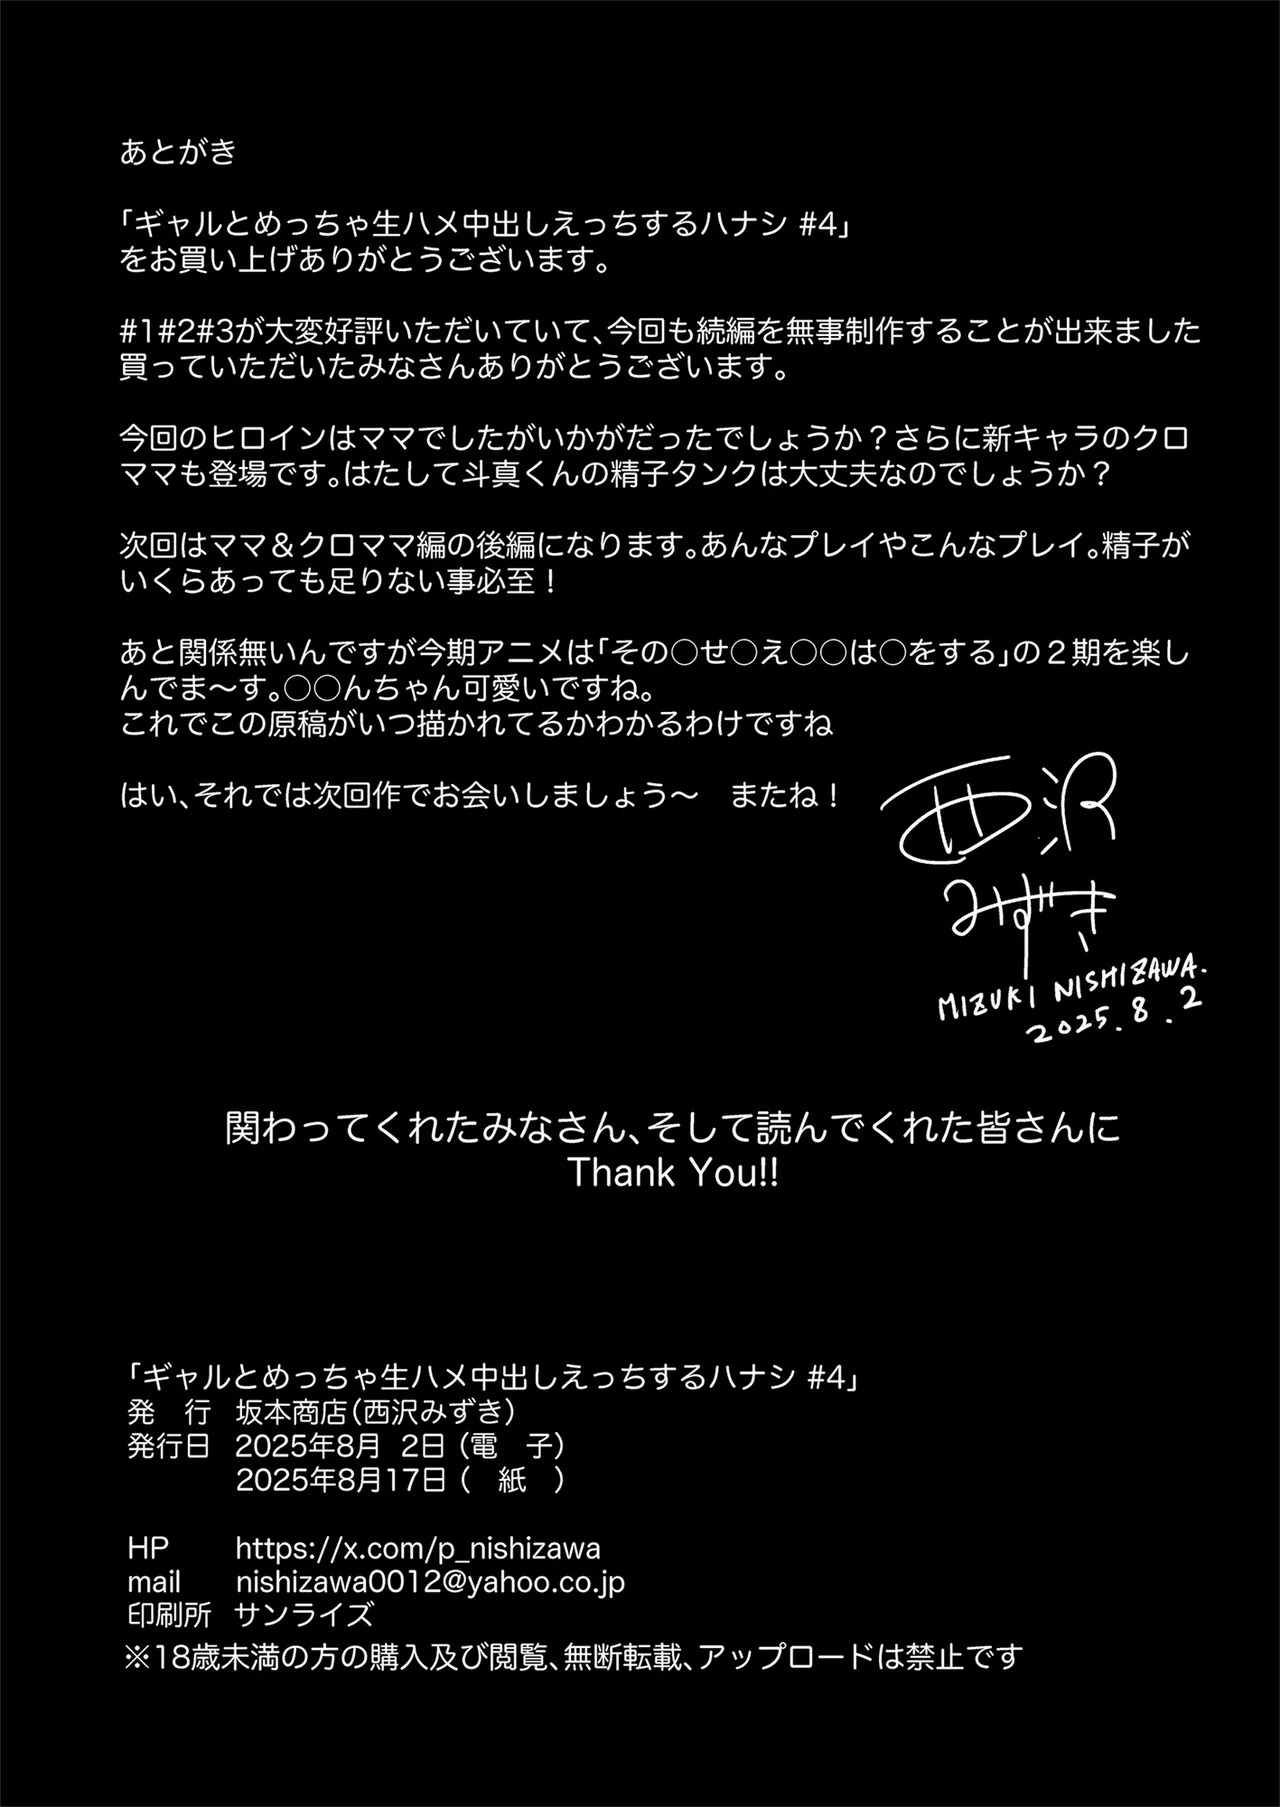 あとがき
「ギャルとめっちゃ生ハメ中出しえっちするハナシ #4」
をお買い上げありがとうございます。
#1#2#3が大変好評いただいていて、今回も続編を無事制作することが出来ました
買っていただいたみなさんありがとうございます。
今回のヒロインはママでしたがいかがだったでしょうか？さらに新キャラのクロ
ママも登場です。はたして斗真くんの精子タンクは大丈夫なのでしょうか？
次回はママ＆クロママ編の後編になります。あんなプレイやこんなプレイ。精子が
いくらあっても足りない事必至！
あと関係無いんですが今期アニメは「その○せ○え○○は○をする」の２期を楽し
んでま〜す。○○んちゃん可愛いですね。
これでこの原稿がいつ描かれてるかわかるわけですね
はい、それでは次回作でお会いしましょう〜　またね！
西沢
みずき
MIZUKI NISHIZAWA.
2025.8.2
関わってくれたみなさん、そして読んでくれた皆さんに
Thank You!!
「ギャルとめっちゃ生ハメ中出しえっちするハナシ #4」
発　行　坂本商店（西沢みずき）
発行日　2025年8月　2日（電　子）
2025年8月17日（　紙　）
HP　https://x.com/p_nishizawa
mail　nishizawa0012@yahoo.co.jp
印刷所　サンライズ
※18歳未満の方の購入及び閲覧、無断転載、アップロードは禁止です